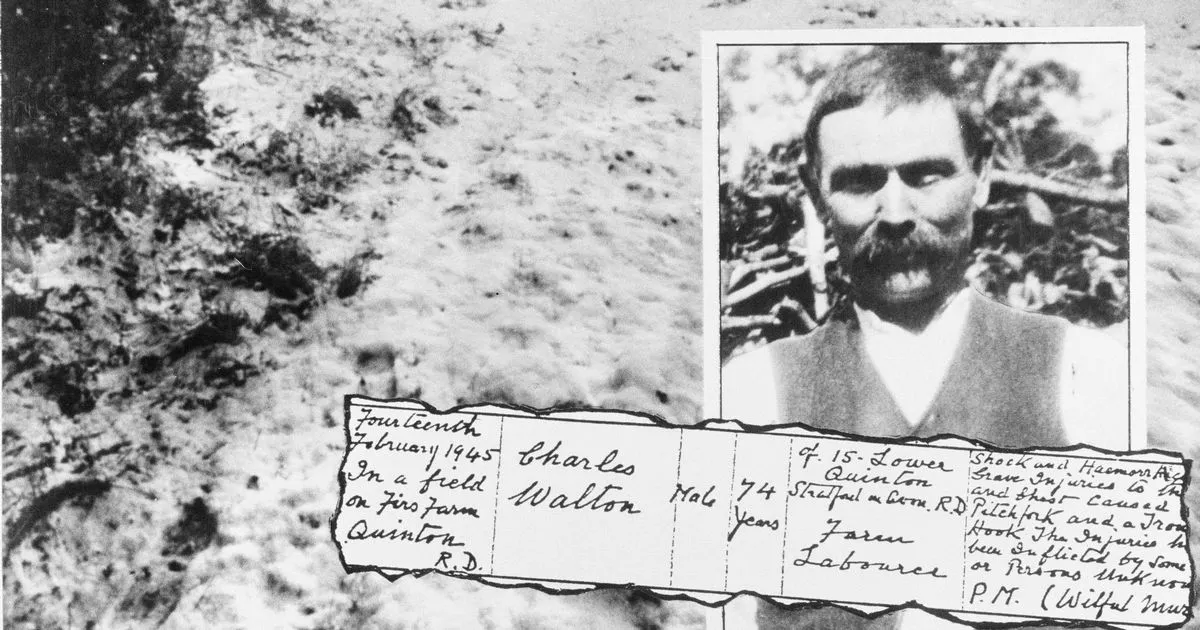 Fourteenth
February 1945
In a field
on Firs Farm
Quinton
R.D.
Charles
Walton
Male
74
Years
Of. 15 - Lower
Quinton
Stratford on Avon. R.D
Farm
Labourer
Shock and Haemorrhage
Grave Injuries to the
and Chest Caused
Pitchfork and a
Hook The Injuries
been Inflicted by Some
or Persons
P.M. (Wilful